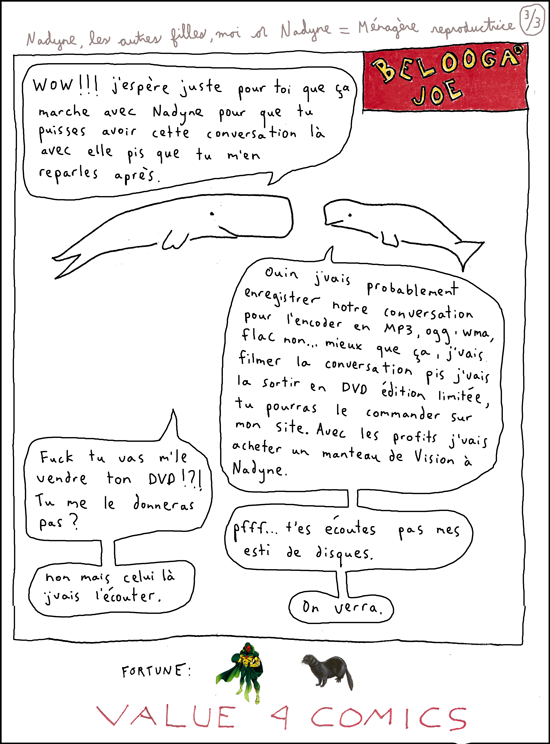 Nadyne, les autres filles, moi et Nadyne = Ménagère reproductrice 3/3
BELOOGA
JOE
WOW!!! j'espère juste pour toi que ça
marche avec Nadyne pour que tu
puisses avoir cette conversation là
avec elle pis que tu m'en
reparles après.
Ouin j'vais probablement
enregistrer notre conversation
pour l'encoder en MP3, ogg, wma,
flac non... mieux que ça, j'vais
filmer la conversation pis j'vais
la sortir en DVD édition limitée,
tu pourras le commander sur
mon site. Avec les profits j'vais
acheter un manteau de Vision à
Nadyne.
Fuck tu vas m'le
vendre ton DVD!?!
Tu me le donneras
pas?
pfff... t'es écoutes pas mes
esti de disques.
non mais celui là
j'vais l'écouter.
On verra.
FORTUNE:
VALUE 4 COMICS